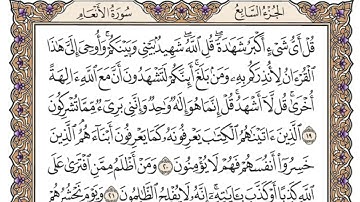 سورة الأنعام الجزء السابع
قُلْ أَىُّ شَىْءٍ أَكْبَرُ شَهَـٰدَةً قُلِ ٱللَّهُ شَهِيدٌۢ بَيْنِى وَبَيْنَكُمْ وَأُوحِىَ إِلَىَّ هَـٰذَا
ٱلْقُرْءَانُ لِأُنذِرَكُم بِهِۦ وَمَنۢ بَلَغَ أَئِنَّكُمْ لَتَشْهَدُونَ أَنَّ مَعَ ٱللَّهِ ءَالِهَةً
أُخْرَىٰ قُل لَّآ أَشْهَدُ قُلْ إِنَّمَا هُوَ إِلَـٰهٌ وَٰحِدٌ وَإِنَّنِى بَرِىٓءٌ مِّمَّا تُشْرِكُونَ
١٩ ٱلَّذِينَ ءَاتَيْنَـٰهُمُ ٱلْكِتَـٰبَ يَعْرِفُونَهُۥ كَمَا يَعْرِفُونَ أَبْنَآءَهُمُ ٱلَّذِينَ
خَسِرُوٓا۟ أَنفُسَهُمْ فَهُمْ لَا يُؤْمِنُونَ ٢٠ وَمَنْ أَظْلَمُ مِمَّنِ ٱفْتَرَىٰ عَلَى
ٱللَّهِ كَذِبًا أَوْ كَذَّبَ بِـَٔايَـٰتِهِۦٓ إِنَّهُۥ لَا يُفْلِحُ ٱلظَّـٰلِمُونَ ٢١ وَيَوْمَ نَحْشُرُهُمْ